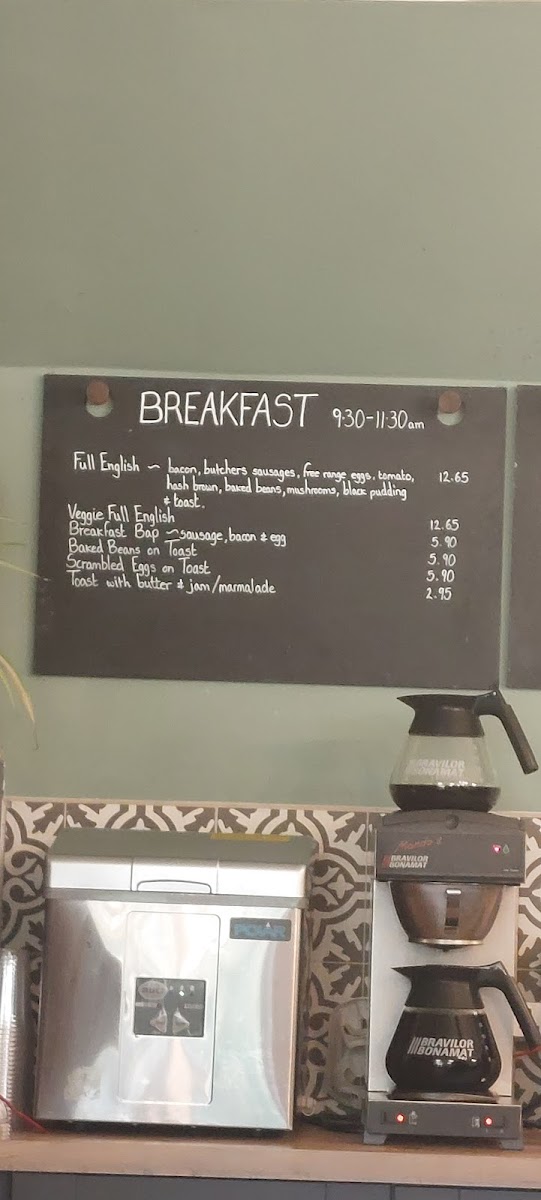 BREAKFAST 9:30-11:30am
Full English ~ bacon, butchers sausages, free range eggs, tomato, 12.65
hash brown, baked beans, mushrooms, black pudding
& toast.
Veggie Full English 12.65
Breakfast Bap ~ sausage, bacon & egg 5.90
Baked Beans on Toast 5.90
Scrambled Eggs on Toast 5.90
Toast with butter & jam/marmalade 2.95
BRAVILOR
BONAMAT
Mondo 2
BRAVILOR
BONAMAT
BRAVILOR
BONAMAT